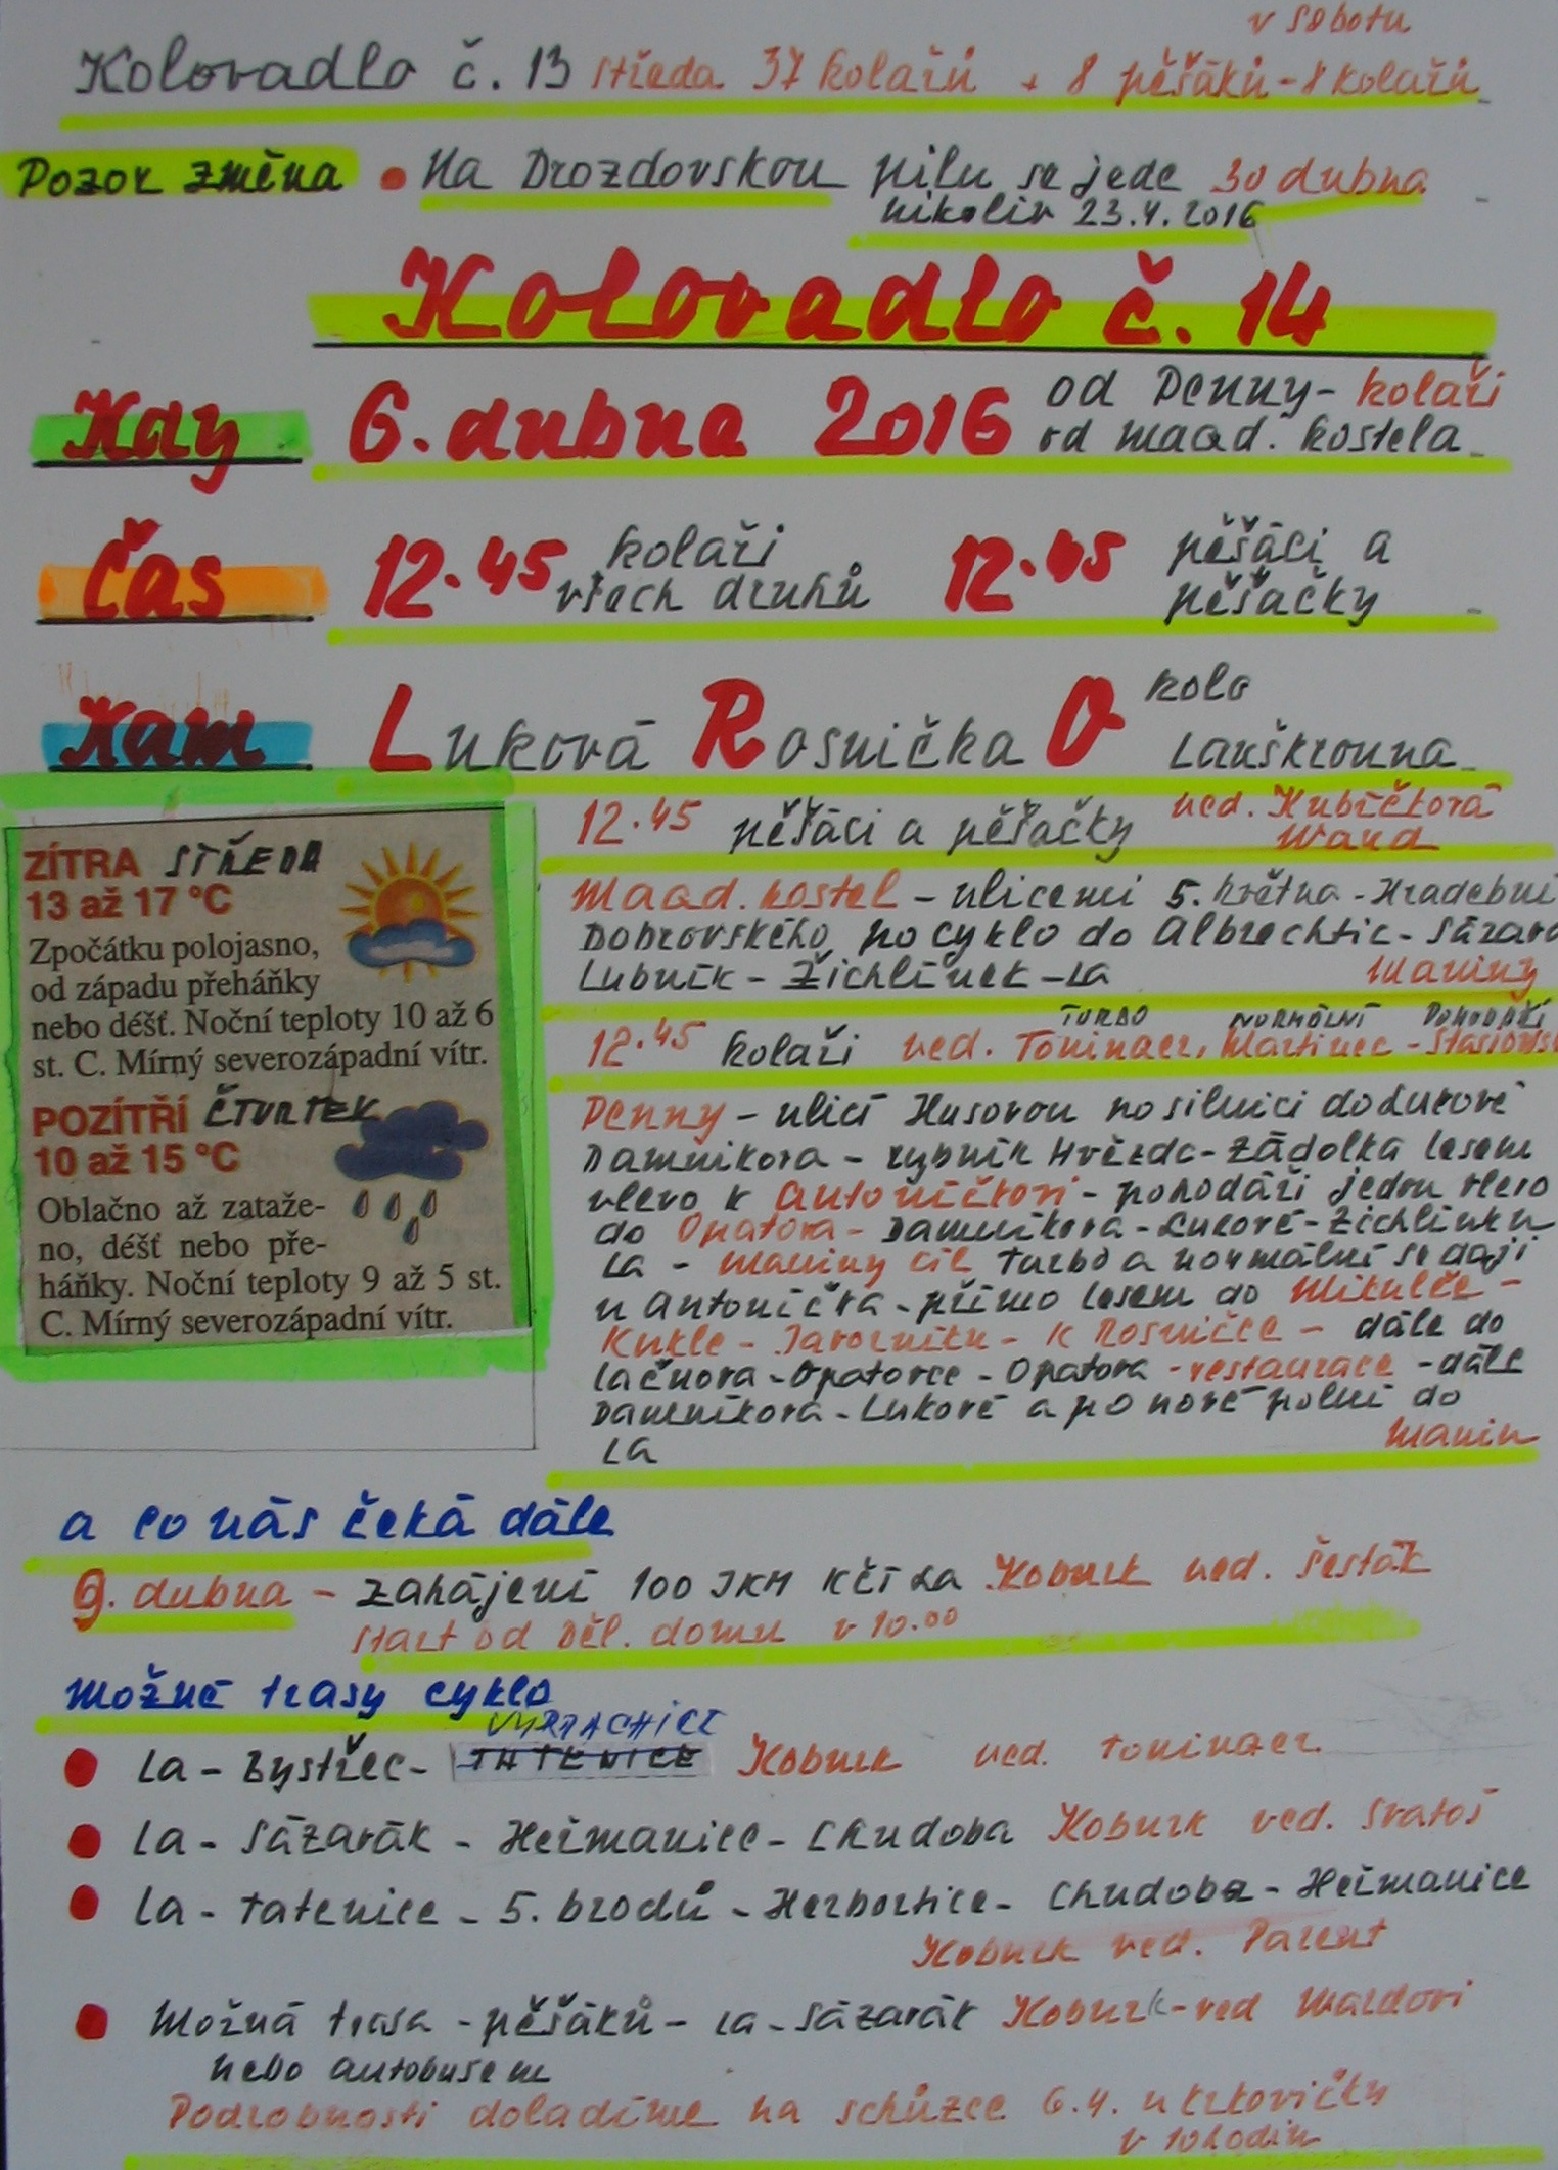 v sobotu
Kolovadlo č. 13 středa 37 kolařů + 8 pěšáků - 8 kolařů
Pozor změna • Na Drozdovskou pilu se jede 30 dubna
nikoliv 23.4.2016
Kolovadlo č. 14
Kdy 6. dubna 2016 od Penny - kolaři
od maad. kostela
Čas 12.45 kolaři všech druhů 12.45 pěšáci a pěšačky
Kam Luková Rosnička O kolo Lanškrouna
12.45 pěšáci a pěšačky ved. Kubíčková
Wand
Maad. kostel - ulicemi 5. května - Hradební
Dobrovského po cyklo do Albrechtic - Sázava
Lubník - Žichlínek - La Maviny
TURBO NORMÁLNÍ POHODÁŘI
12.45 kolaři ved. Toninaer, Martinec -
Penny - ulicí Husovou po silnici do Lukové
Damníkova - rybník Hvězda - Zádolka lesem
vlevo k Antoníčkovi - pohodáři jedou vlevo
do Opatova - Damníkova - Lukové - Žichlínku
La - Maviny cíl turbo a normální se dají
u Antoníčka - přímo lesem do Mikulče -
Kukle - Javorníku - k Rosničce - dále do
Lačnova - Opatovce - Opatova - restaurace - dále
Damníkova - Lukové a po nové polní do
La Mavin
ZÍTRA STŘEDA
13 až 17 °C
Zpočátku polojasno,
od západu přeháňky
nebo déšť. Noční teploty 10 až 6
st. C. Mírný severozápadní vítr.
POZÍTŘÍ ČTVRTEK
10 až 15 °C
Oblačno až zataže-
no, déšť nebo pře-
háňky. Noční teploty 9 až 5 st.
C. Mírný severozápadní vítr.
a co nás čeká dále
9. dubna - zahájení 100 JKM KČT La Koburk ved. Šesták
start od Děl. domu v 10.00
Možné trasy cyklo
VÝPRACHTICE
• La - Bystřec - TATENICE Koburk ved. Toninaer
• La - Sázavák - Heřmanice - Chudoba Koburk ved. Svatoš
• La - Tatenice - 5. brodů - Herbortice - Chudoba - Heřmanice
Koburk ved. Parent
• Možná trasa - pěšáků - La - Sázavák Koburk - ved Maldovi
nebo autobusem
Podrobnosti doladíme na schůzce 6.4. u Crkovičky
v 10 hodin